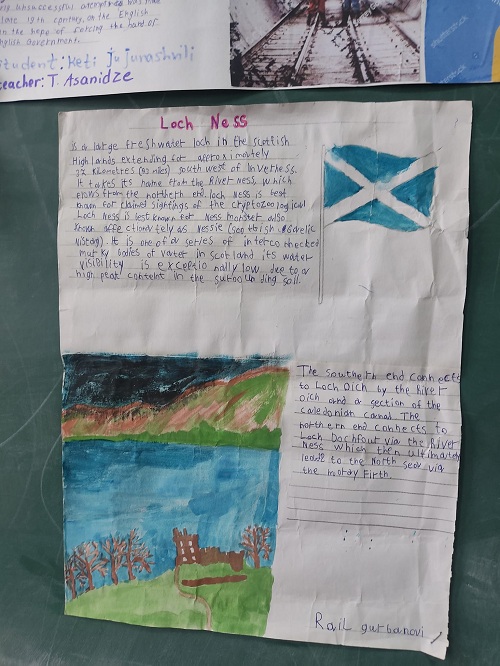 any unsuccessful attempt was made
late 19th century, on the English
in the hope of forcing the hand of
English Government.
student: Keti jujunashvili
teacher: T. Asanidze
shutterstock
Loch Ness
is a large freshwater loch in the scottish
Highlands extending for approximately
37 kilometres (23 miles) southwest of Inverness.
It takes its name from the River Ness, which
flows from the northern end. loch Ness is best
known for claimed sightings of the cryptozoological
Loch Ness is best known for Ness monster also
known affectionately as Nessie (
It is one of a series of interconnected
murky bodies of water in scotland its water
visibility is exceptionally low due to a
high peat content in the surrounding soil.
The southern end connects
to Loch Oich by the River
Oich and a section of the
caledonian canal. The
northern end connects to
Loch Dochfour via the River
Ness, which then ultimately
leads to the North sea via
the moray Firth.
Rail gurbanovi